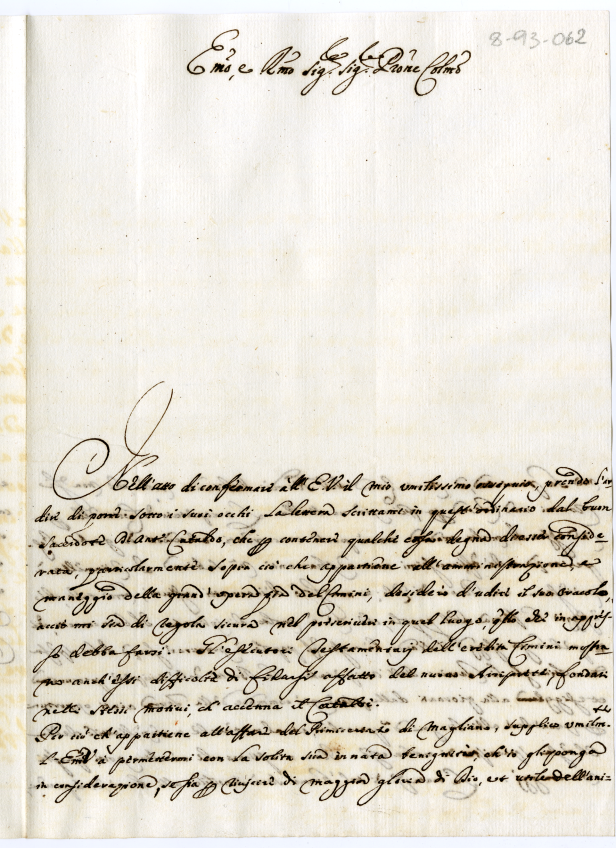 8-93-062
Emo, e Rmo Sigr. Sigr. Prone Colmo
Nell'atto di confermare all'E.V. il mio umilissimo ossequio, prendo l'ar
dire di porre sotto i suoi occhi la lettera scrittami in quest'ordinario dal buon
Sacerdote D. Anto. Cataldo, che p contenere qualche cosa degna d'esser conside-
rata, particolarmente sopra ciò che appartiene all' e
maneggio della grand'opera pia del Cimini, desidero d'udire il suo oracolo,
acciò mi sia di regola sicura nel prescrivere in qual luogo, qllo dei in appres-
so debba farsi. Gl'esecutori Testamentarj dell'eredità Cimini mostra
no anch'essi difficoltà di affatto del nuovo fondati
nelli stessi motivi, ch'accenna il Cataldi.
Per ciò ch'appartiene all'affare del Primicerato di Magliano, supplico umilmte
l'Emza V. a permettermi con la solita sua innata benignità ch'io gl'esponga
in considerazione, se sia p riuscire di maggior gloria di Dio, et utile dell'ani-